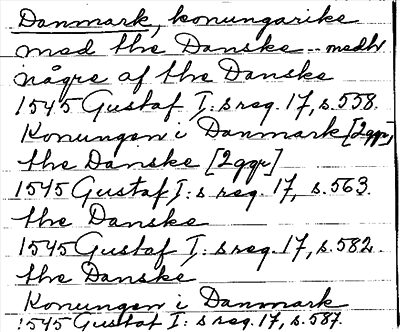 Danmark, konungarike
med the Danske -- medh
någre af the Danske
1545 Gustaf I: s reg. 17, s. 558.
Konungen i Danmark [2ggr]
the Danske [2ggr]
1545 Gustaf I: s reg. 17, s. 563.
the Danske
1545 Gustaf I: s reg. 17, s. 582.
the Danske
Konungen i Danmark
1545 Gustaf I: s reg. 17, s. 587.